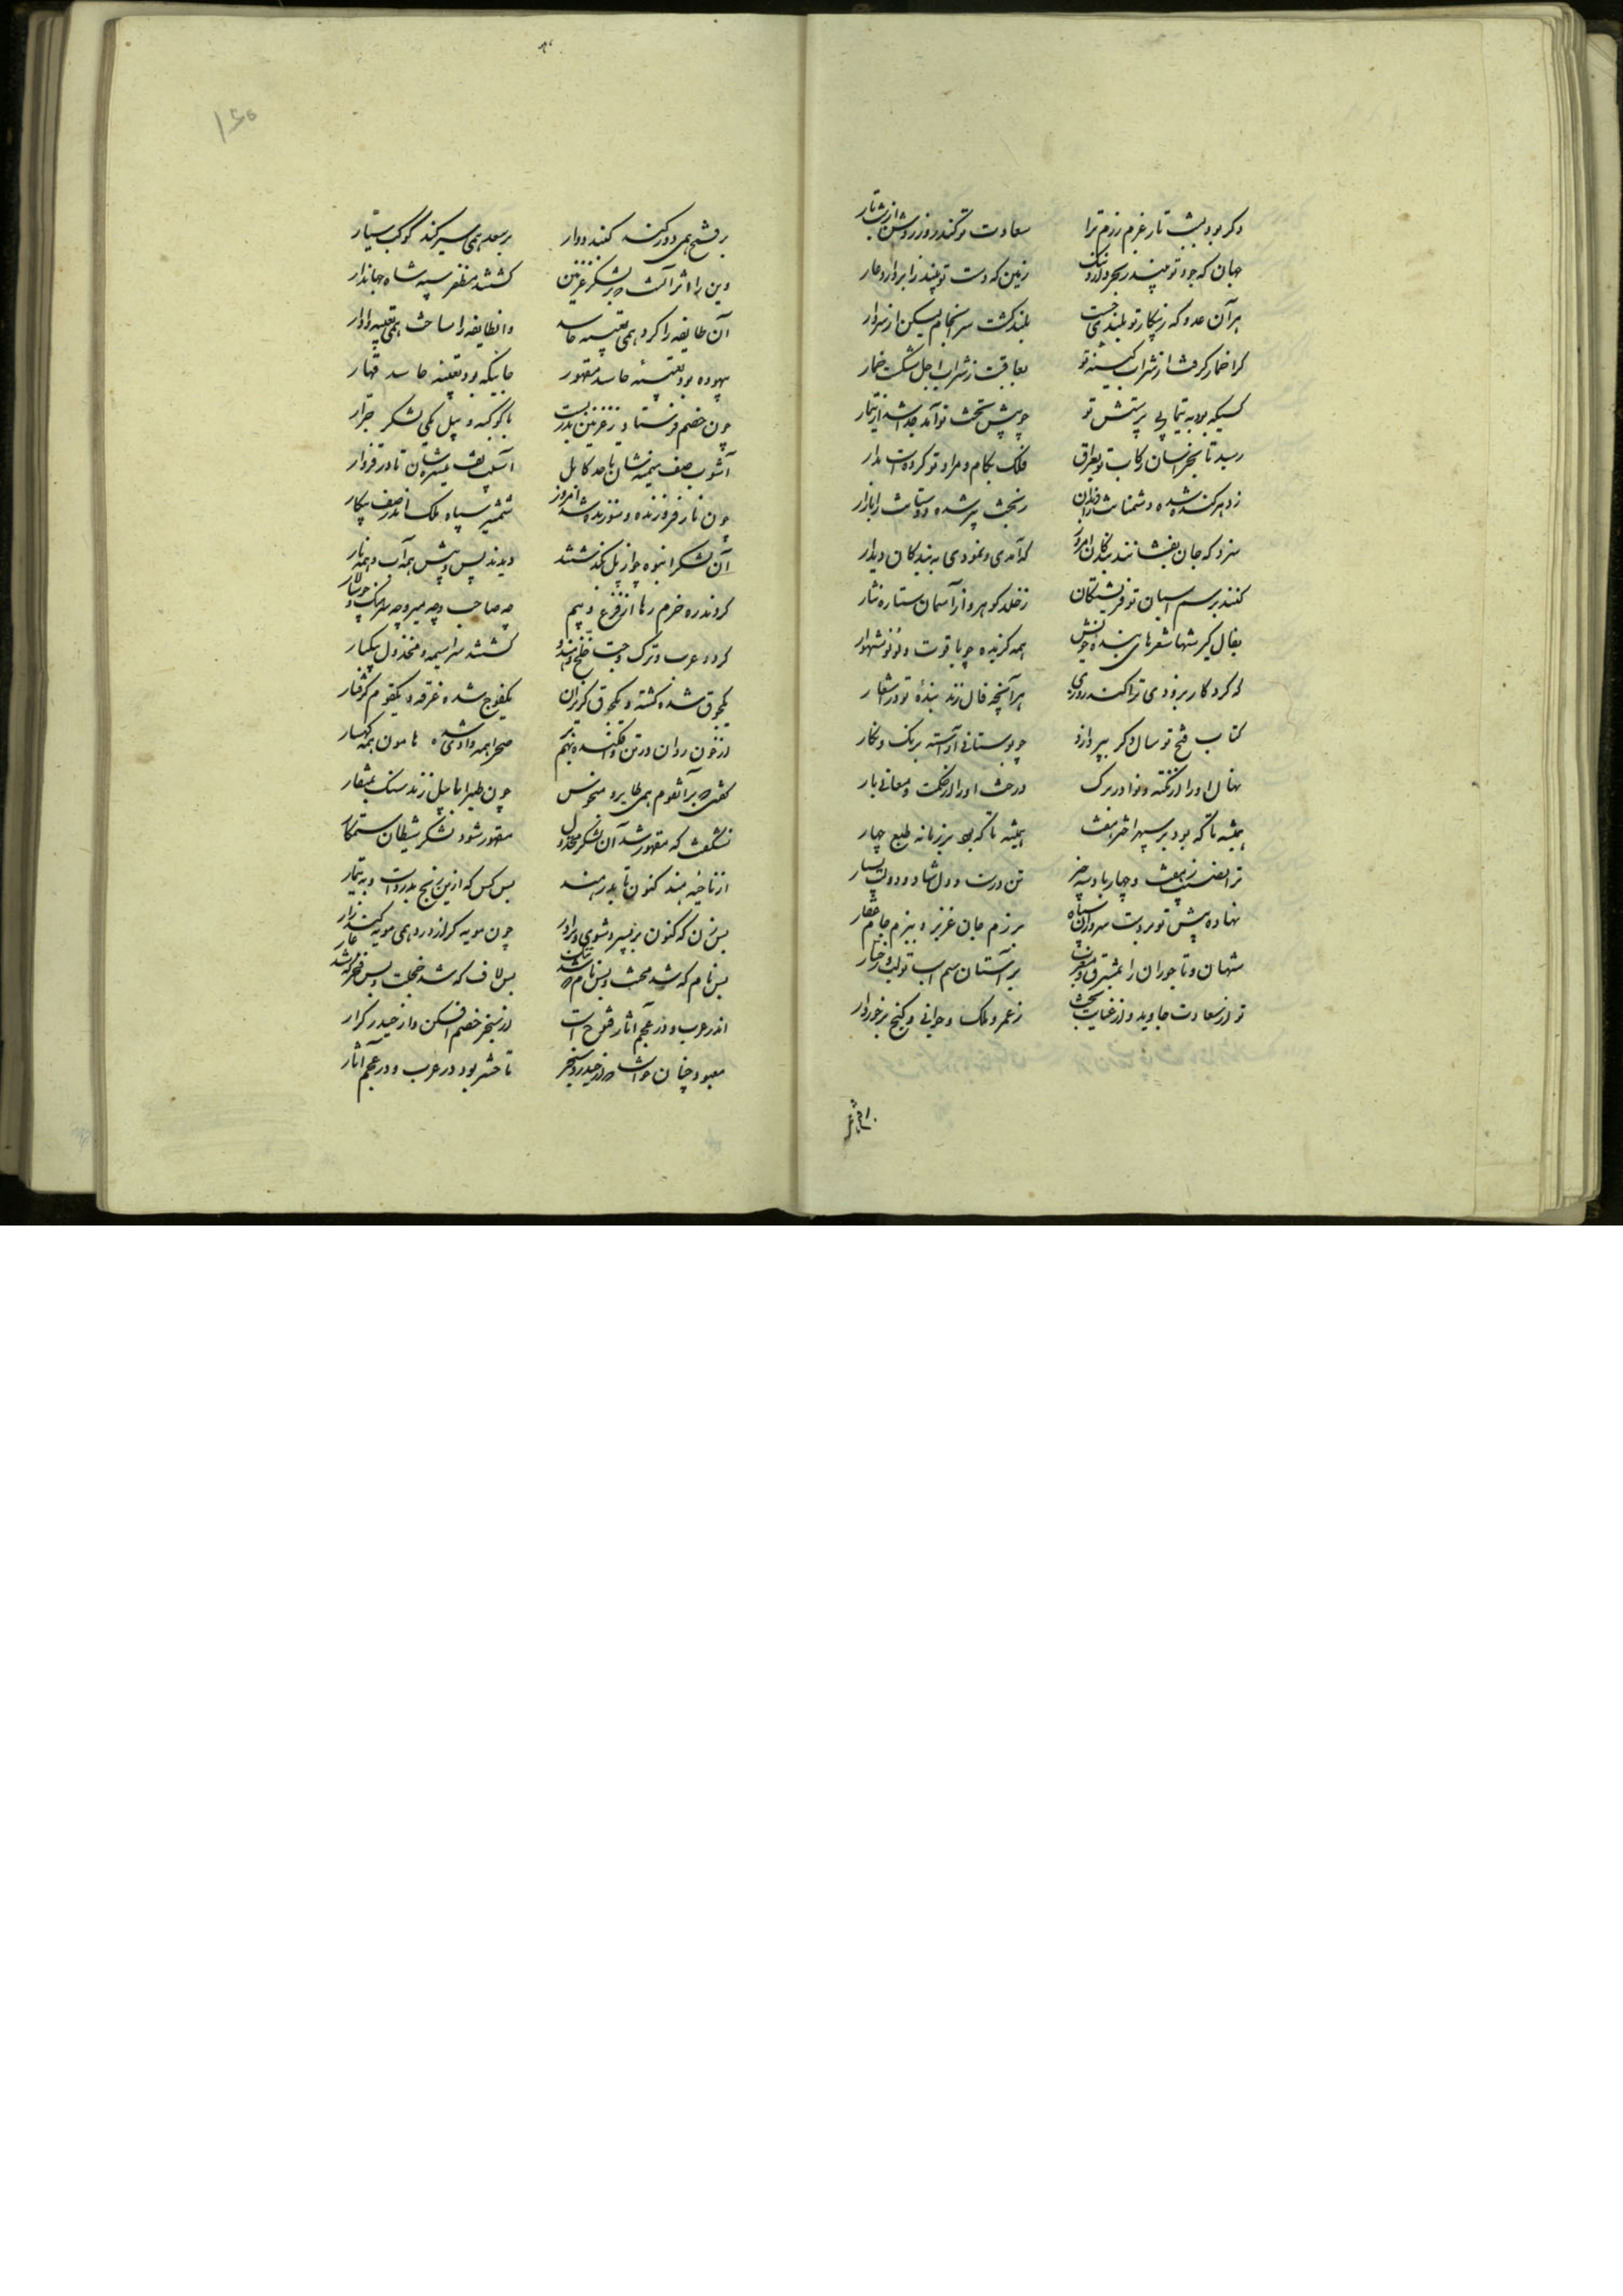 وگر بود بشب تار عزم رزم ترا سعادت تو کند روز روشن از شب تار
جهان که جود تو بیند ز بحر دارد ننگ زمین که دست تو بیند ز ابر دارد عار
هر آن عدو که ز پیکار تو بلندی جست بلند گشت سرانجام لیکن از سر دار
کرا خمار گرفت از شراب کینه تو بعاقبت ز شراب اجل شکست خمار
کسیکه بود به تیمار بی پرستش تو چو پیش تخت تو آمد جدا شد از تیمار
رسید تا بخراسان رکابت و بعراق فلک بکام و مراد تو کرده است مدار
ز دهر کنده شده دشمنانت را دندان ز بخت پر شده دوستانت را بازار
سزد که جان بفشانند بندگان امروز که آمدی و نمودی به بندگان دیدار
کنند بر سم اسبان تو فریشتگان ز خلد گوهر و از آسمان ستاره نثار
بفال گیر شها شعرهای بنده خویش همه گزیده چو یاقوت و لؤلؤ شهوار
که کردگار بزودی ترا کند روزی هر آنچه فال زند بنده تو در اشعار
کتاب فتح تو سال دگر بپردازد چو بوستانی آراسته برنگ و نگار
نهال او را از نکته و نوادر برگ درخت او را از حکمت و معانی بار
همیشه تا که بود بر سپهر اختر هفت همیشه تا که بود بر زمانه طبع چهار
ترا نصیب ز هفت و چهار باد سه چیز تن درست و دل شاد و دولت بسیار
نهاده پیش تو بر دست سروران سپاه برزم جان عزیز و ببزم جام عقار
شهان و تاجوران را بمشرق و مغرب بر آستان سم اسب تو لب و رخسار
تو از سعادت جاوید و از عنایت بخت ز عمر و ملک و جوانی و گنج برخوردار
بر فتح همی دور کند گنبد دوار بر سعد همی سیر کند کوکب سیار
وین را اثر آنست که بر لشکر غزنین گشتند مظفر سپه شاه جهاندار
آن طایفه را کرد همی تعبیه حاسد وانطایفه را ساخت همی تعبیه دادار
بیهوده بود تعبیه حاسد مقهور جاییکه بود تعبیه حاسد قهار
چون خصم فرستاد ز غزنین بدر بست با کوکبه و پیل یکی لشکر جرار
آشوب صف میمنشان تا حد کابل آسیب صف میسرشان تا در فروار
چون نار فروزنده و سوزنده شد امروز شمشیر سپاه ملک اندر صف پیکار
آن لشکر انبوه چو از پل بگذشتند دیدند پس و پیش همه آب و همه نار
کردند ره حزم رها از فزع و بیم چه صاحب و چه میر و چه سرهنگ و چه سالار
کرد و عرب و ترک و خلج و هندو گشتند سراسیمه و مخذول بیکبار
یکجوق شده کشته و یکجوق گریزان یکفوج شده غرقه و یکقوم گرفتار
از خون روان و ز تن افکنده بر هم صحرا همه وادی شده هامون همه کهسار
گفتی که بر آنقوم همی طایر منحوس چون طیر ابابیل زند سنگ بمنقار
نشگفت که مقهور شد آن لشکر مخذول مقهور شود لشکر شیطان ستمکار
از ناحیه هند کنون تا بدر هند بس کس که ازین رنج بدردست و به تیمار
بس زن که کنون بر پسر و شوی و برادر چون مویه گر از درد همی مویه کند زار
بس نام که شد محنت و بس نام که شد ننگ بس لاف که شد خجلت و بس فخر که شد عار
اندر عرب و در عجم آثار فتوح است از سنجر خصم افکن و از حیدر کرار
معبود چنان خواست که از حیدر و سنجر تا حشر بود در عرب و در عجم آثار